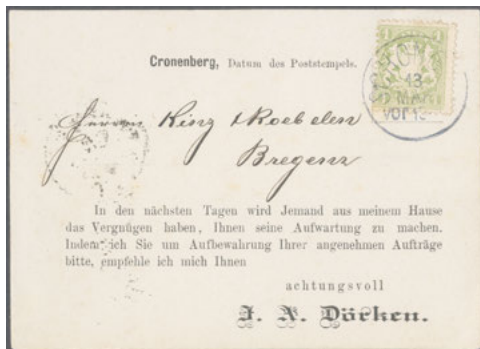 1 1
13
MÄR
VOR 12
Cronenberg, Datum des Poststempels.
Herren Kinz & Roebelen
Bregenz
In den nächsten Tagen wird Jemand aus meinem Hause
das Vergnügen haben, Ihnen seine Aufwartung zu machen.
Indem ich Sie um Aufbewahrung Ihrer angenehmen Aufträge
bitte, empfehle ich mich Ihnen
achtungsvoll
J. A. Döcken.